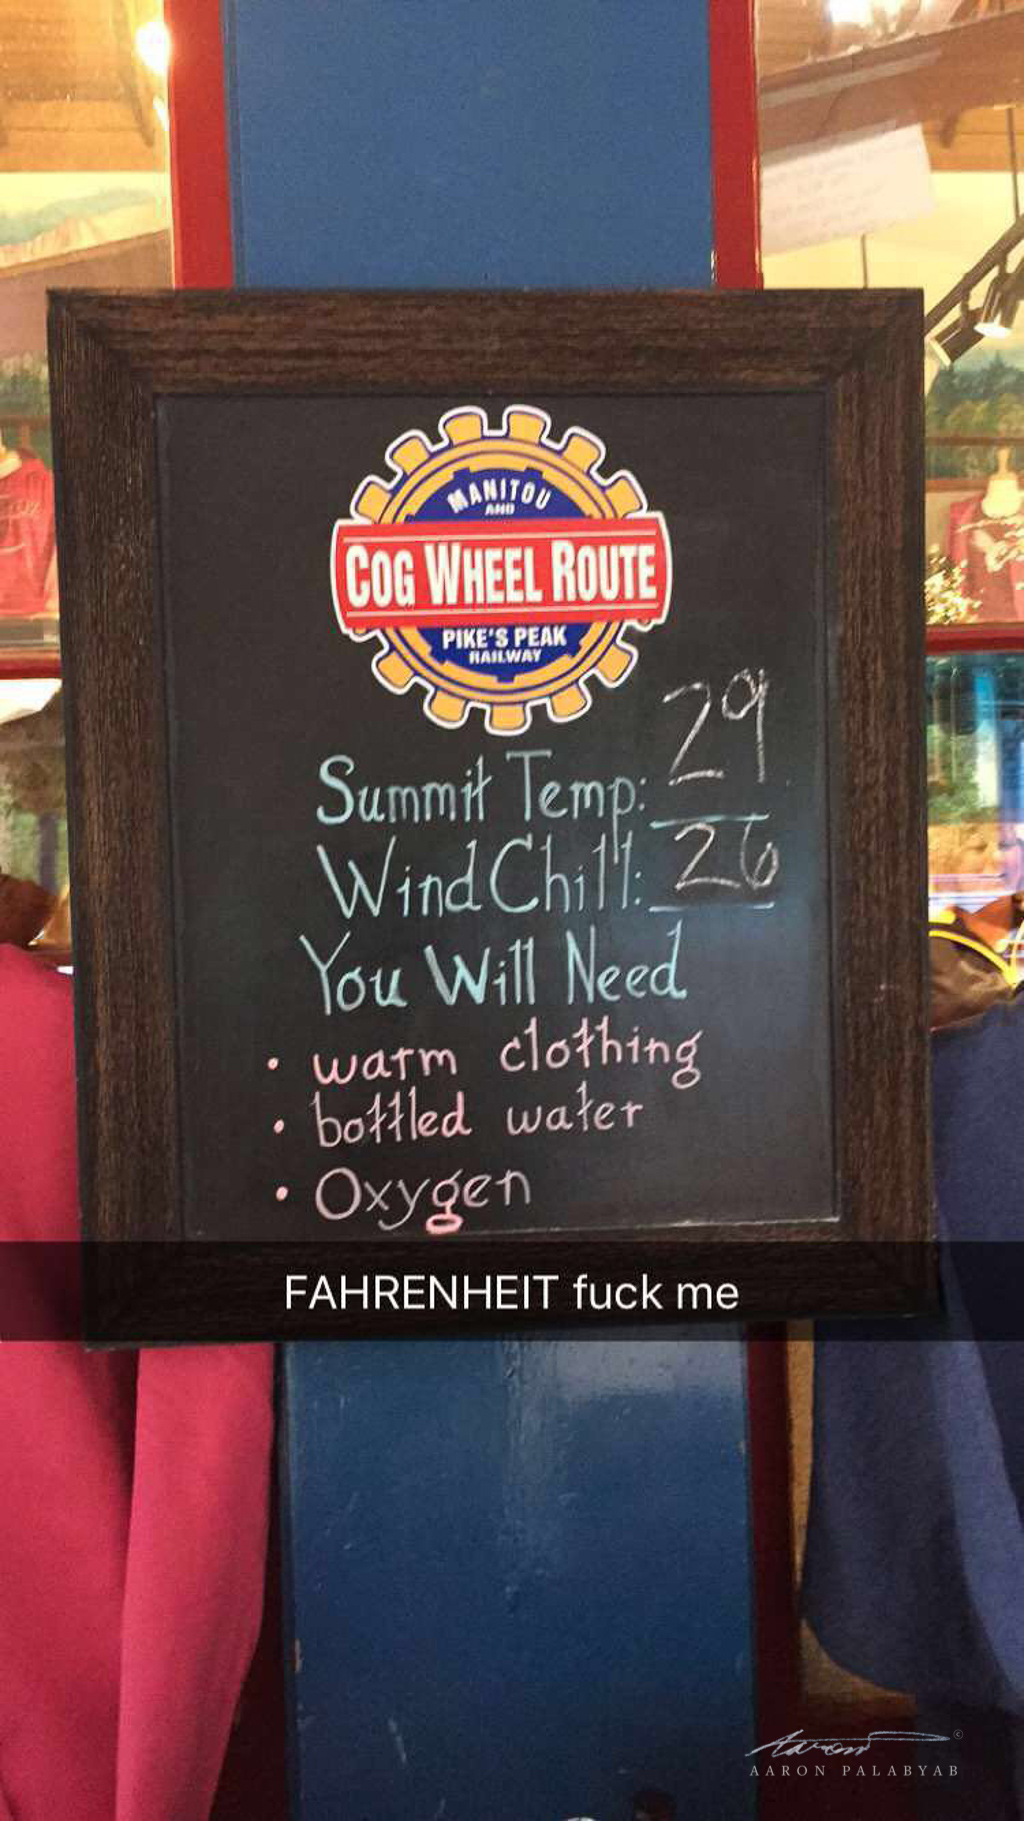 MANITOU
AND
COG WHEEL ROUTE
PIKE'S PEAK
RAILWAY
Summit Temp: 29
Wind Chill: 26
You Will Need
• warm clothing
• bottled water
• Oxygen
FAHRENHEIT fuck me
Aaron ©
AARON PALABYAB